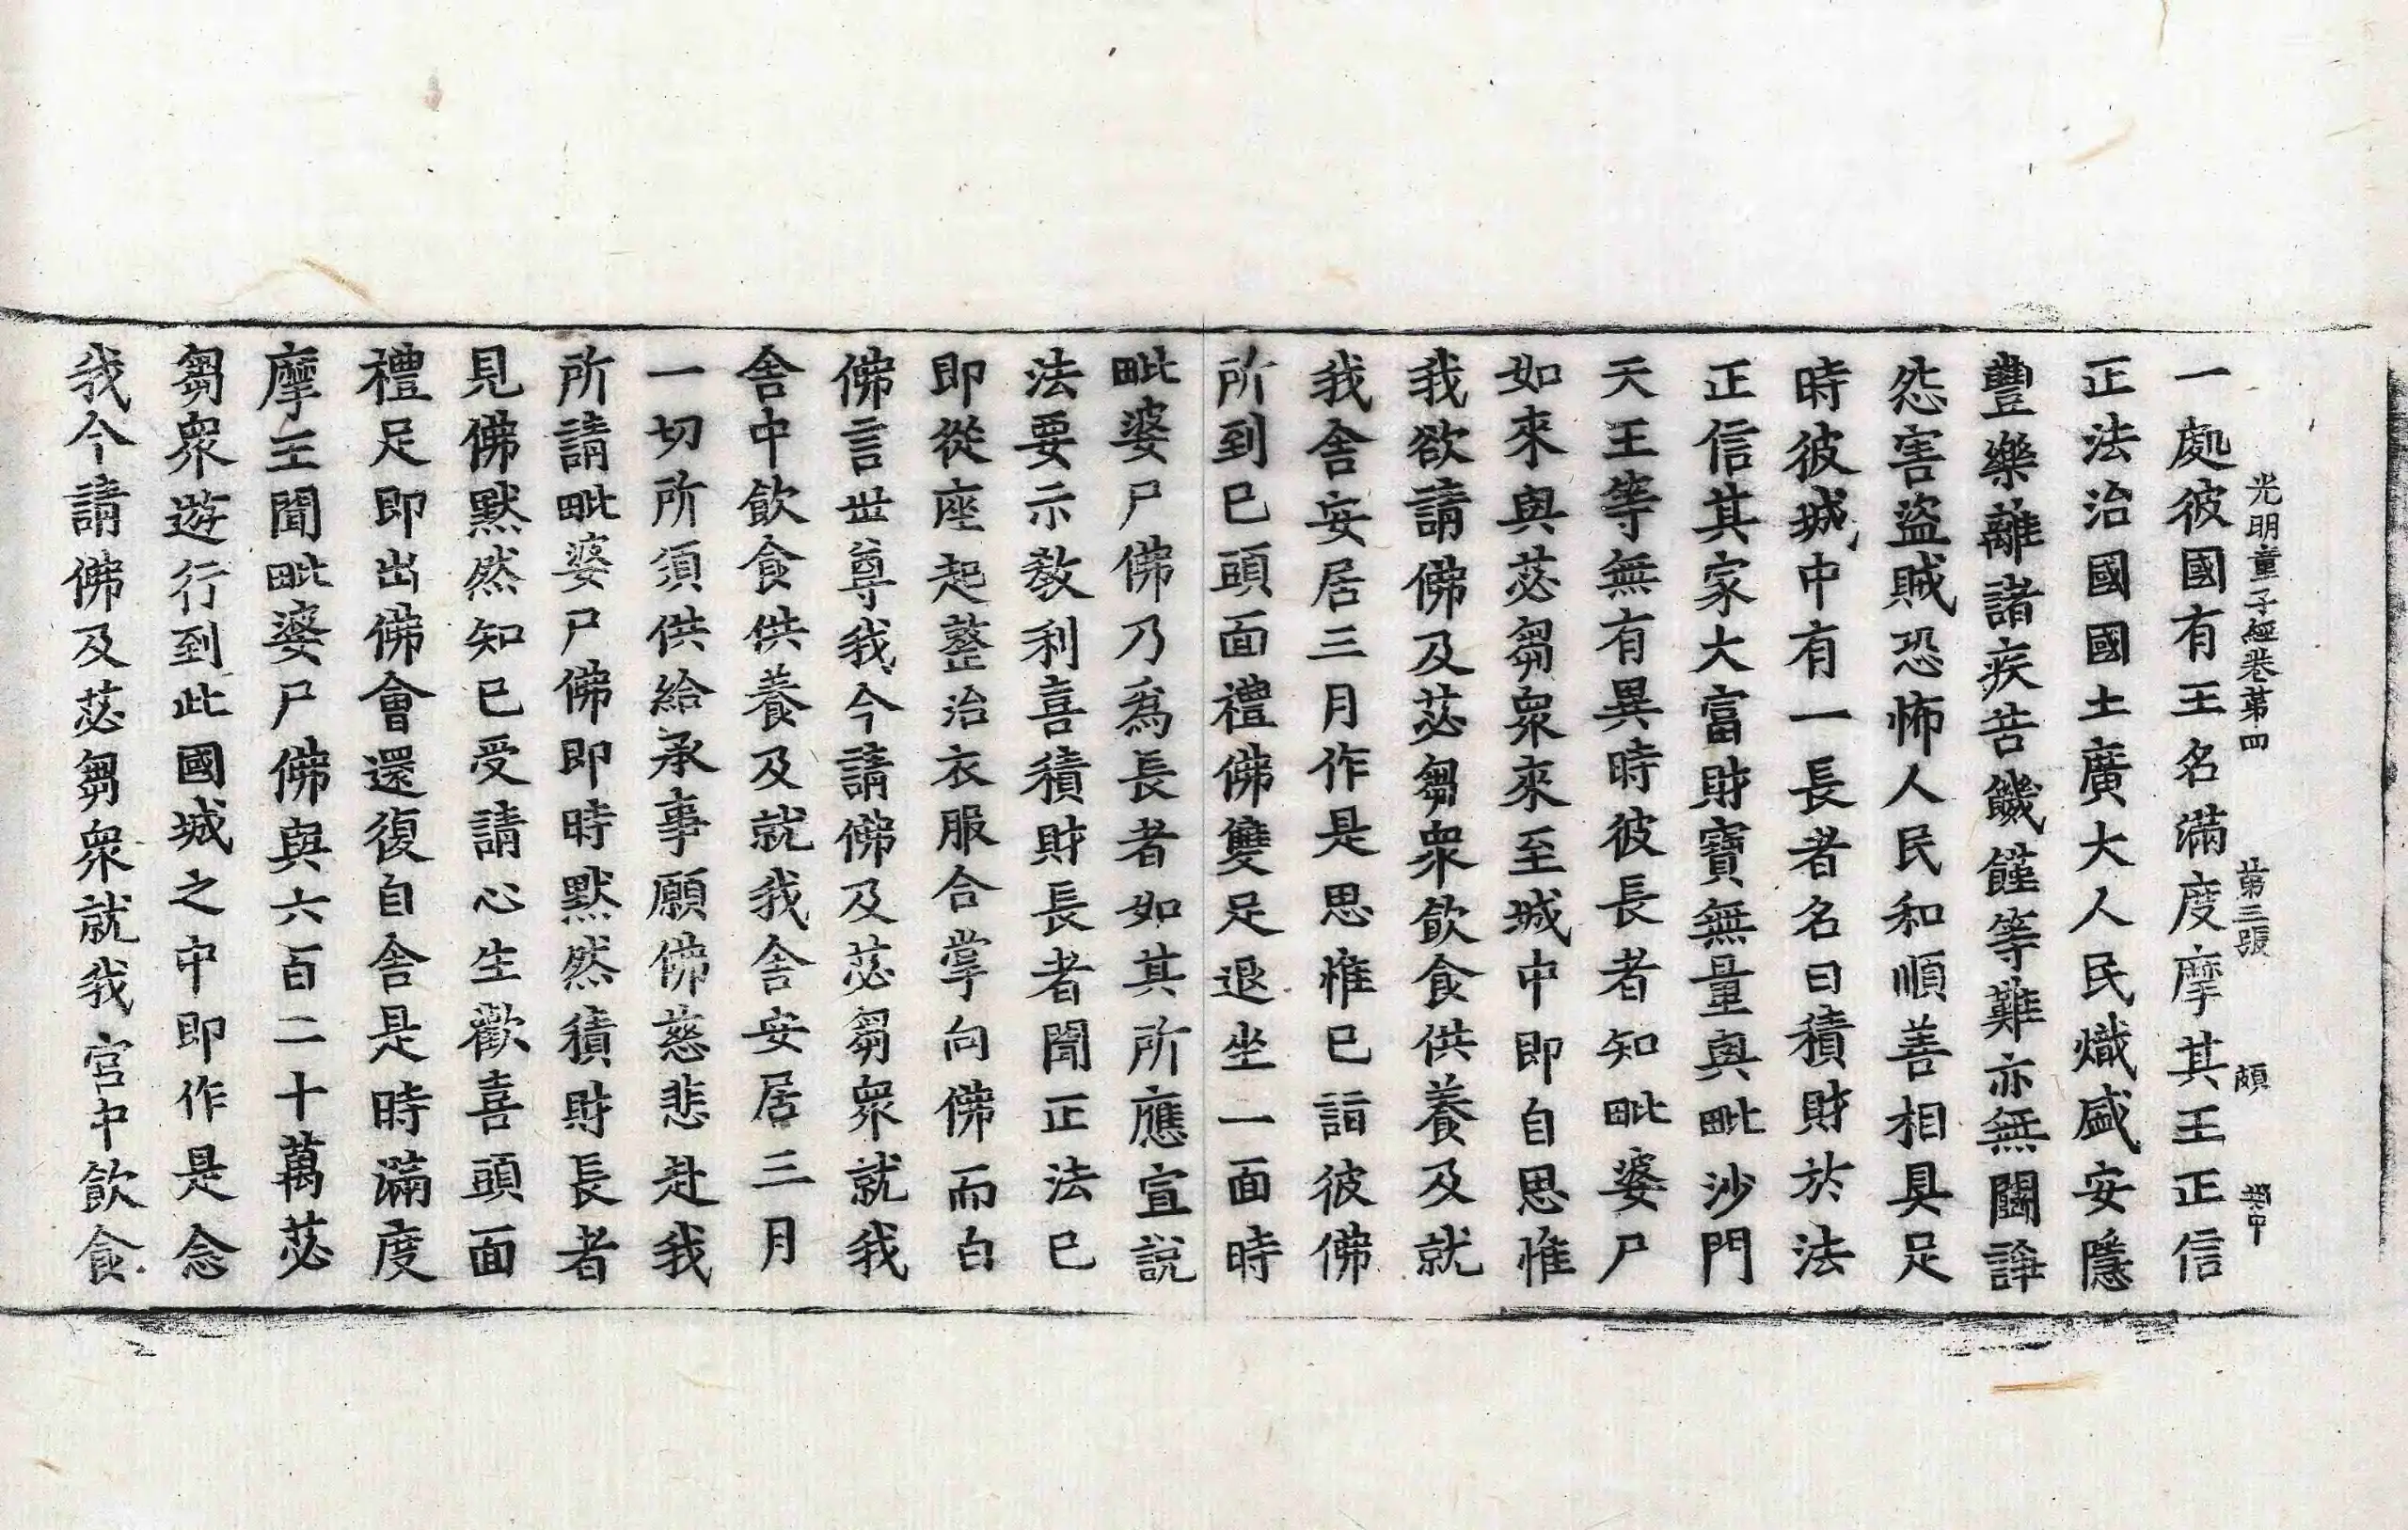 光明童子經卷第四 第三張 頗
一處彼國有王名滿度摩其王正信
正法治國國土廣大人民熾盛安隱
豐樂離諸疾苦饑饉等難亦無鬪諍
怨害盜賊恐怖人民和順善相具足
時彼城中有一長者名曰積財於法
正信其家大富財寶無量與毗沙門
天王等無有異時彼長者知毗婆尸
如來與苾芻衆來至城中即自思惟
我欲請佛及苾芻衆飲食供養及就
我舍安居三月作是思惟已詣彼佛
所到已頭面禮佛雙足退坐一面時
毗婆尸佛乃爲長者如其所應宣說
法要示教利喜積財長者聞正法已
即從座起整治衣服合掌向佛而白
佛言世尊我今請佛及苾芻衆就我
舍中飲食供養及就我舍安居三月
一切所須供給承事願佛慈悲赴我
所請毗婆尸佛即時默然積財長者
見佛默然知已受請心生歡喜頭面
禮足即出佛會還復自舍是時滿度
摩王聞毗婆尸佛與六百二十萬苾
芻衆遊行到此國城之中即作是念
我今請佛及苾芻衆就我宮中飲食